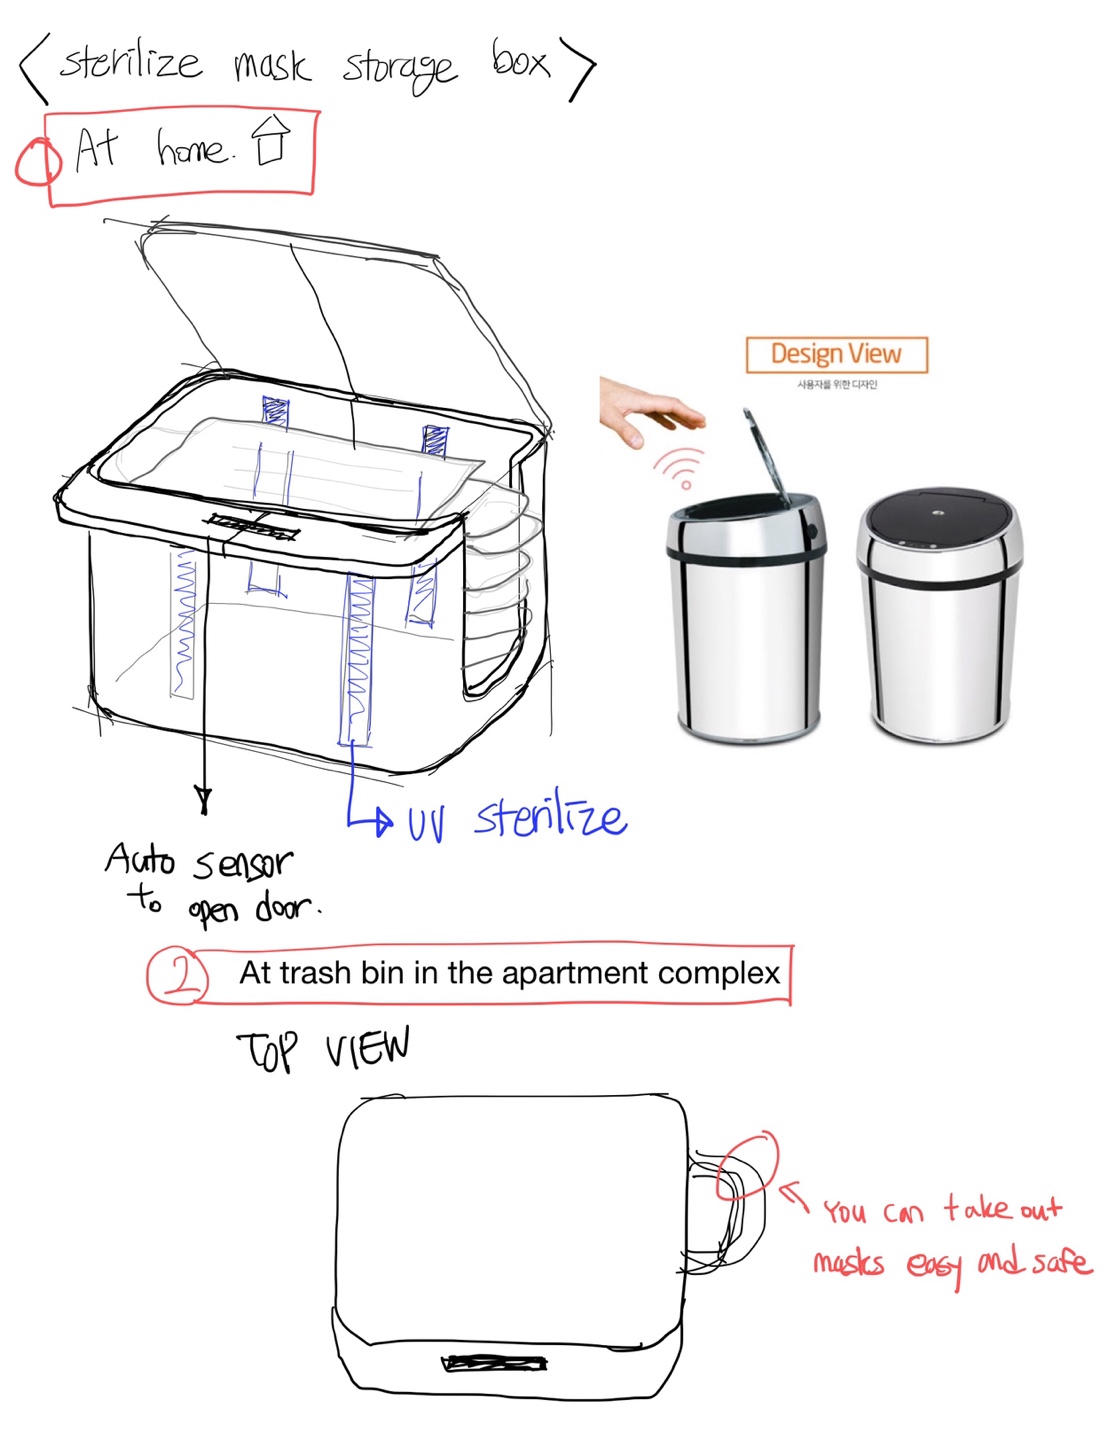 <sterilize mask storage box>
1 At home.
Design View
사용자를 위한 디자인
UV sterilize
Auto sensor
to open door.
2 At trash bin in the apartment complex
TOP VIEW
You can take out
masks easy and safe